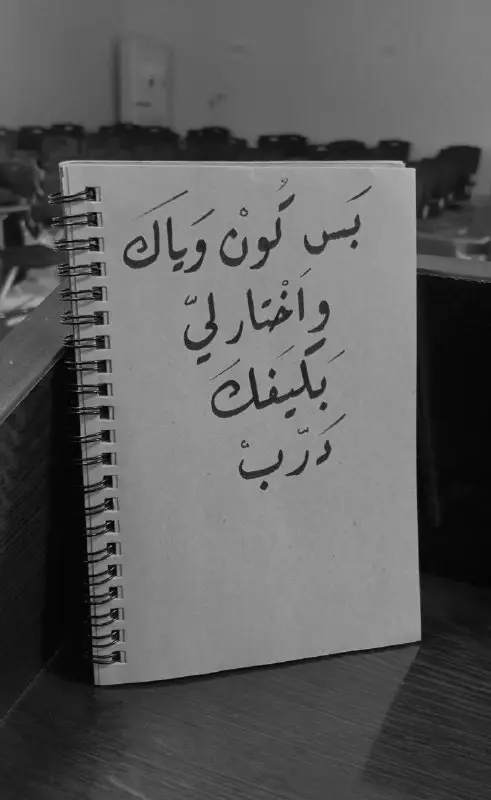 بَس كُونْ وَياكَ
واَخْتار ليّ
بَكَيفكَ
دَرّبْ